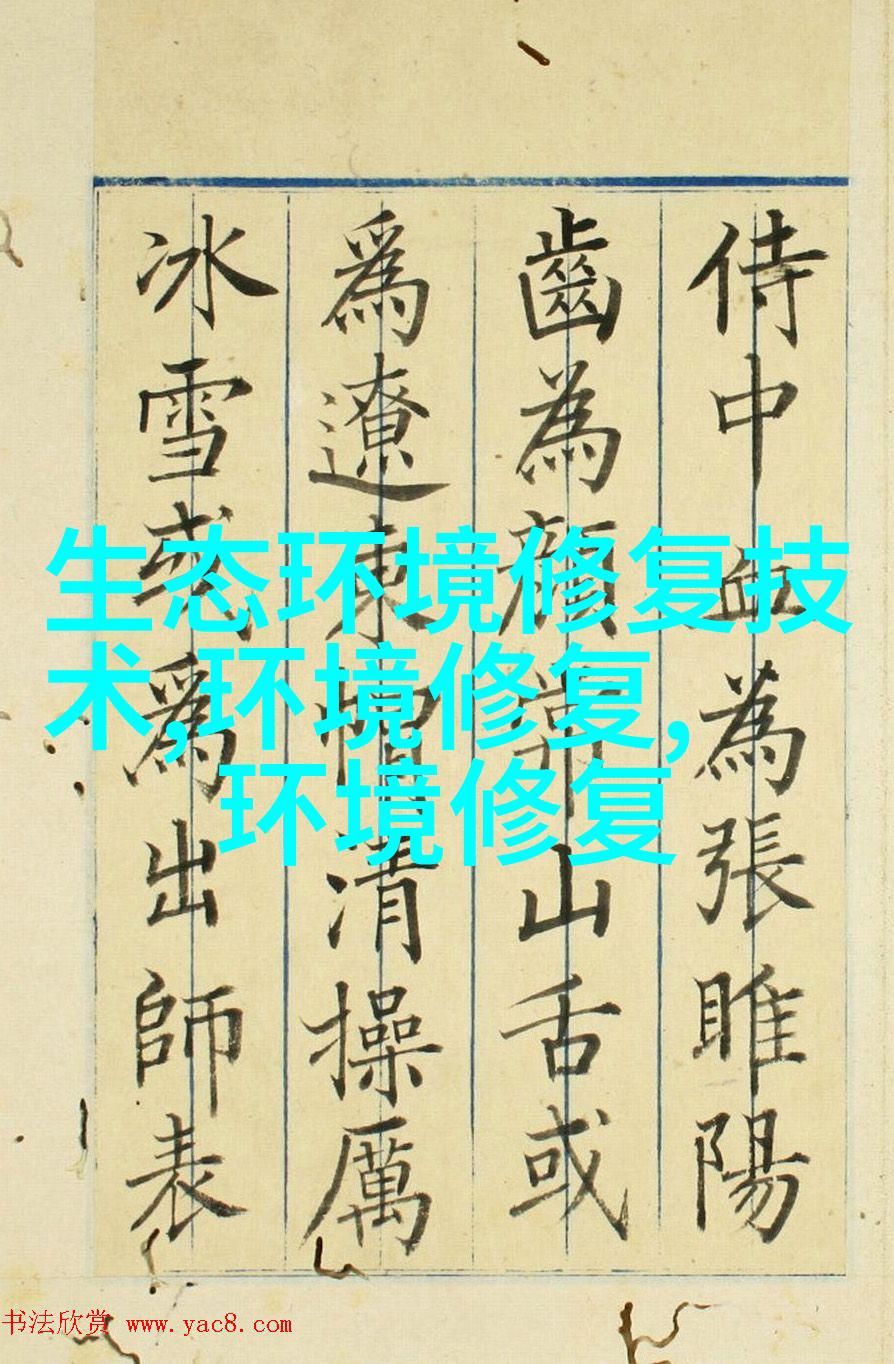 侍中血為張睢陽
齒為顏常山舌或
爲遼東帽清操厲
冰雪或爲出師表
生态环境修复技
术,环境修复,
环境修复
书法欣赏 www.yac8.com